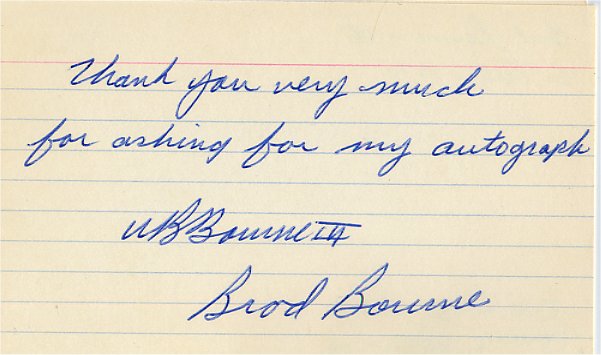 Thank you very much
for asking for my autograph
WBBourne III
Brad Bourne